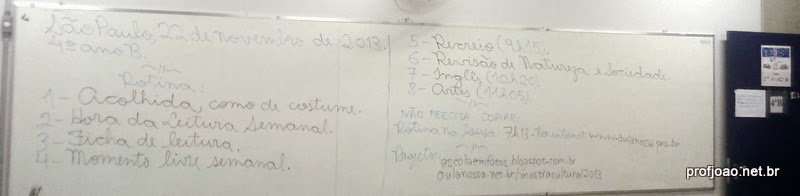 São Paulo, 22 de novembro de 2013.
4º ano B.
Rotina:
1 - Acolhida, como de costume.
2 - Hora da Leitura Semanal.
3 - Ficha de leitura.
4 - Momento livre semanal.
5 - Recreio (9h15).
6 - Revisão de Natureza e Sociedade.
7 - Inglês (10h20)
8 - Artes (11h05).
NÃO PRECISA COPIAR:
Rotina na lousa 7h13 - Na internet: www.aulanossa.pro.br
Projetos:
escolaemfotos.blogspot.com.br
aulanossa.net.br/mostracultural2013
4ºB
profjoao.net.br